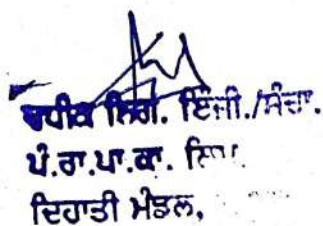 ਵਧੀਕ ਨਿਗ. ਇੰਜੀ./ਸੰਚਾ.
ਪੰ.ਰਾ.ਪਾ.ਕਾ. ਲਿਮ.
ਦਿਹਾਤੀ ਮੰਡਲ,